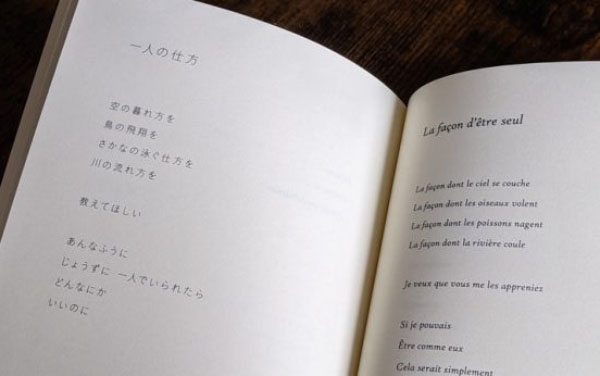 一人の仕方
空の暮れ方を
鳥の飛翔を
さかなの泳ぐ仕方を
川の流れ方を
教えてほしい
あんなふうに
じょうずに 一人でいられたら
どんなにか
いいのに
La façon d'être seul
La façon dont le ciel se couche
La façon dont les oiseaux volent
La façon dont les poissons nagent
La façon dont la rivière coule
Je veux que vous me les appreniez
Si je pouvais
Être comme eux
Cela serait simplement